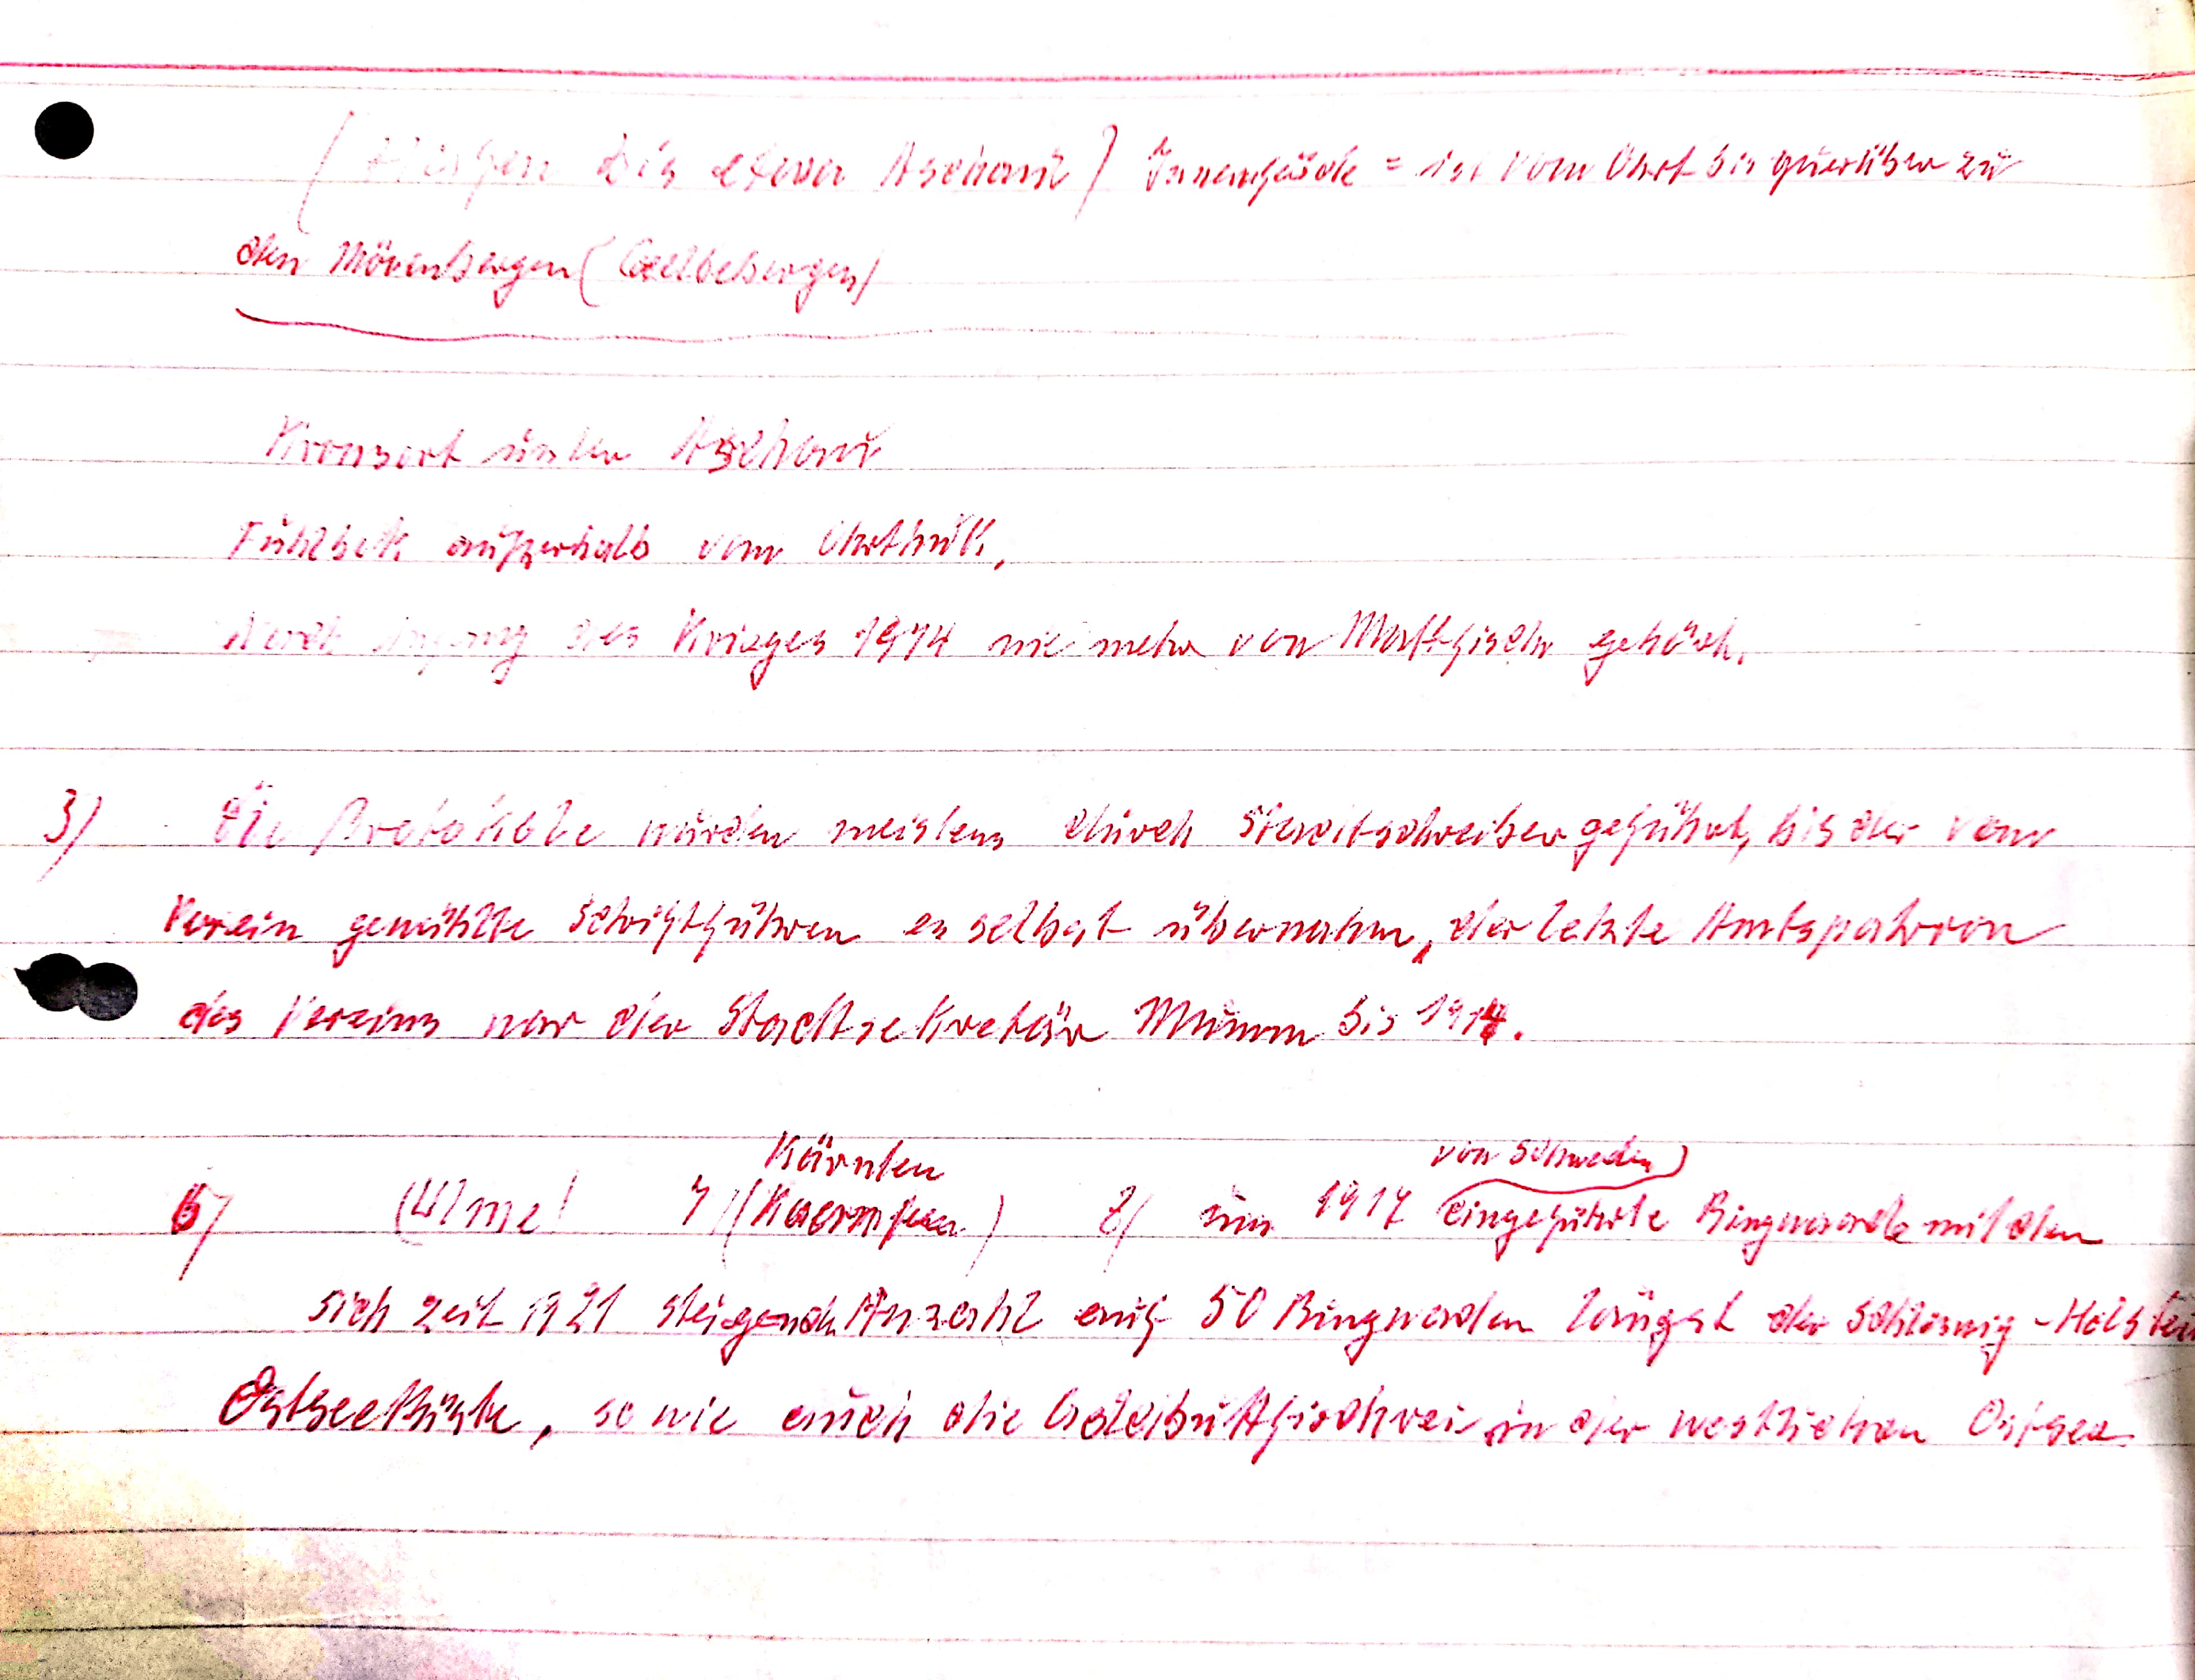 bis etwa Aschau) Innenförde = ist vom Ohrt bis querüber zu
den Mövenbergen (Gelbebergen)
Kronsort unter Aschau
Fuhlbek außerhalb vom Ohrthuk,
des Krieges 1914 nie mehr von Mattfischr gehört.
3) Die Protokolle wurden meistens durch Stadtschreiber geführt, bis der vom
Verein gewählte Schriftführer es selbst übernahm, der letzte Amtspatron
des Vereins war der Stadtsekretär Mumm bis 1914.
Kärnten von Schweden)
6) 7) 8) um 1917 eingeführte Ringwade mit den
sich zeit 1921 steigende Anzahl auf 50 Ringwaden längst der Schleswig-Holstein
Ostseeküste, so wie auch die Goldbuttfischrei in der westlichen Ostsee